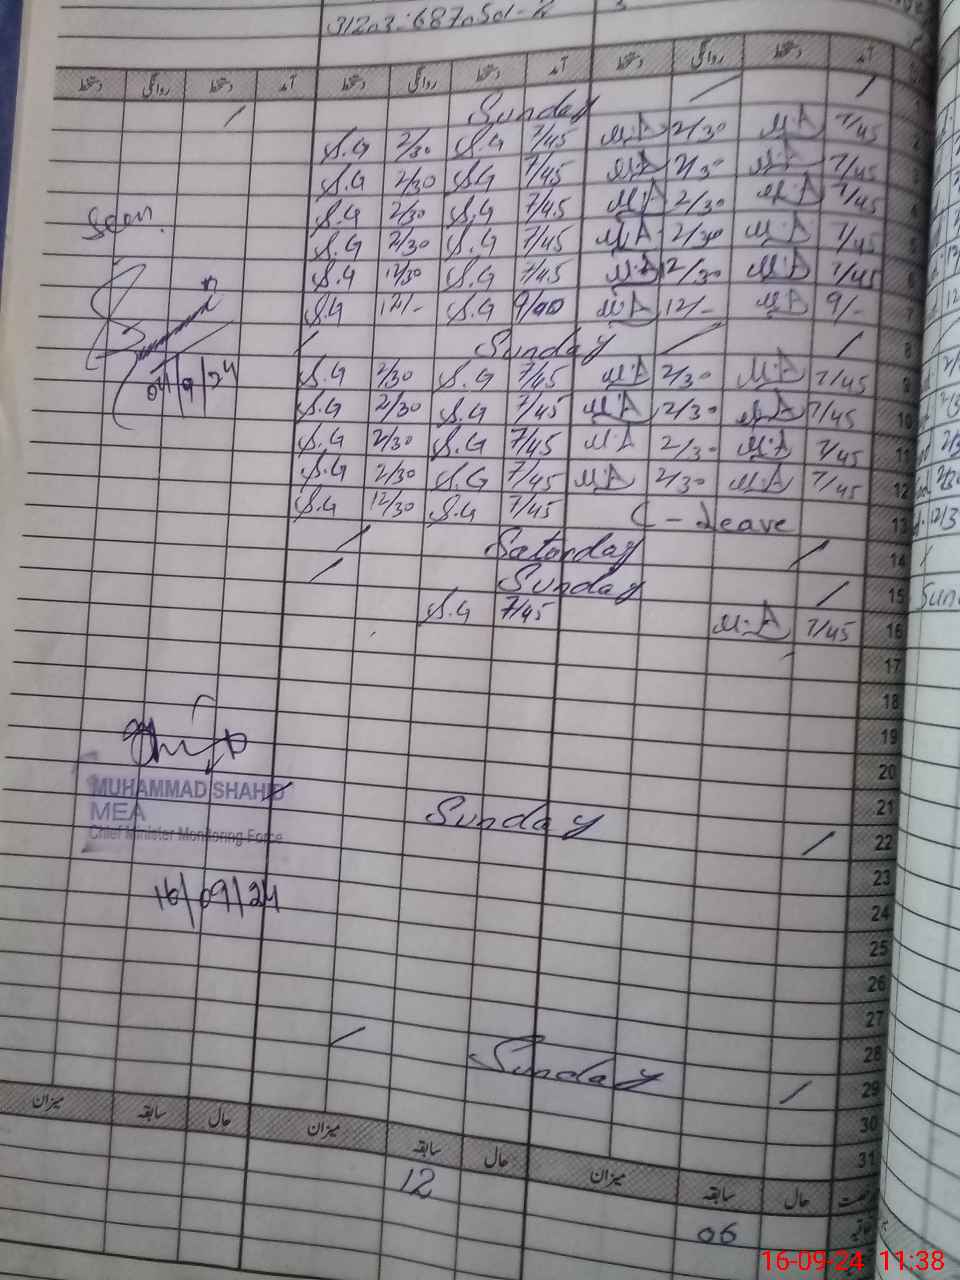 31203-6870501-2
آمد دستخط روانگی دستخط آمد دستخط روانگی دستخط آمد دستخط روانگی دستخط
1 Sunday
2 7/45 M.A 2/30 M.A 7/45 S.G 2/30 S.G
3 7/45 M.A 2/30 M.A 7/45 S.G 2/30 S.G
4 7/45 M.A 2/30 M.A 7/45 S.G 2/30 S.G
5 7/45 M.A 2/30 M.A 7/45 S.G 2/30 S.G
6 7/45 M.A 12/30 M.A 7/45 S.G 12/30 S.G
7 9/- M.A 12/- M.A 9/00 S.G 12/- S.G
8 Sunday
9 7/45 M.A 2/30 M.A 7/45 S.G 2/30 S.G
10 7/45 M.A 2/30 M.A 7/45 S.G 2/30 S.G
11 7/45 M.A 2/30 M.A 7/45 S.G 2/30 S.G
12 7/45 M.A 2/30 M.A 7/45 S.G 2/30 S.G
13 C-Leave 7/45 S.G 12/30 S.G
14 Satarday
15 Sunday
16 7/45 M.A 7/45 S.G
17
18
19
20
21
22 Sunday
23
24
25
26
27
28
29 Sunday
30
31
Seen
04/9/24
MUHAMMAD SHAHID
MEA
Chief Minister Monitoring Force
16/09/24
حال سابقہ میزان حال سابقہ میزان حال سابقہ میزان
06 12
16-09-24 11:38